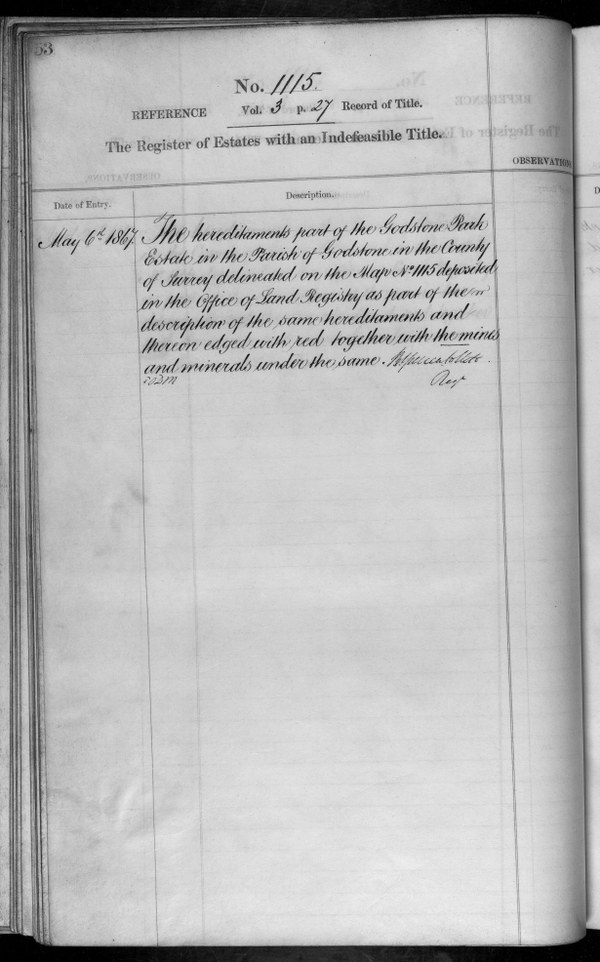 53
No. 1115.
REFERENCE Vol. 3 p. 27 Record of Title.
The Register of Estates with an Indefeasible Title.
OBSERVATIONS
Date of Entry.
Description.
May 6th 1867.
The hereditaments part of the Godstone Park
Estate in the Parish of Godstone in the County
of Surrey delineated on the Map No 1115 deposited
in the Office of Land Registry as part of the
description of the same hereditaments and
thereon edged with red together with the mines
and minerals under the same.
Regr